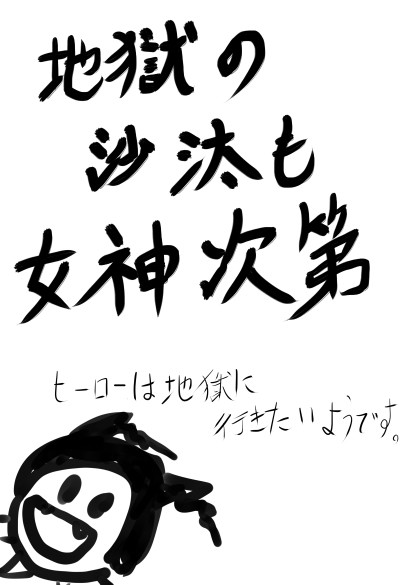 地獄の
沙汰も
女神次第
ヒーローは地獄に
行きたいようです。